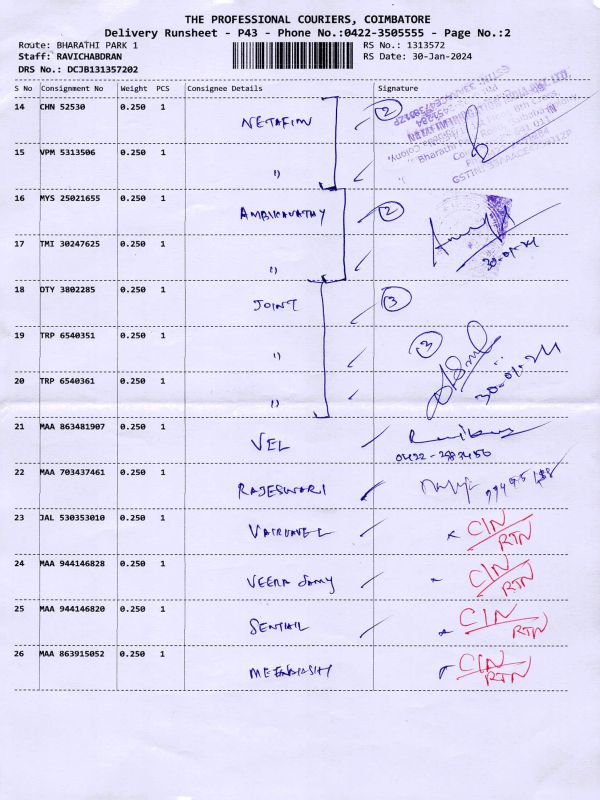 THE PROFESSIONAL COURIERS, COIMBATORE
Delivery Runsheet - P43 - Phone No.:0422-3505555 - Page No.:2
Route: BHARATHI PARK 1 RS No.: 1313572
Staff: RAVICHABDRAN RS Date: 30-Jan-2024
DRS No.: DCJB131357202
S No Consignment No Weight PCS Consignee Details Signature
14 CHN 52530 0.250 1 NETAFIM 2
15 VPM 5313506 0.250 1 "
16 MYS 25021655 0.250 1 AMBIKAVATHY 2
17 TMI 30247625 0.250 1 " 30-01-24
18 OTY 3802285 0.250 1 JOINT 3
19 TRP 6540351 0.250 1 " 3
20 TRP 6540361 0.250 1 " 30-01-24
21 MAA 863481907 0.250 1 VEL
22 MAA 703437461 0.250 1 RAJESWARI
23 JAL 530353010 0.250 1 CIN RTN
24 MAA 944146828 0.250 1 VEERA Samy CIN RTN
25 MAA 944146820 0.250 1 SENTHIL CIN RTN
26 MAA 863915052 0.250 1 CIN RTN